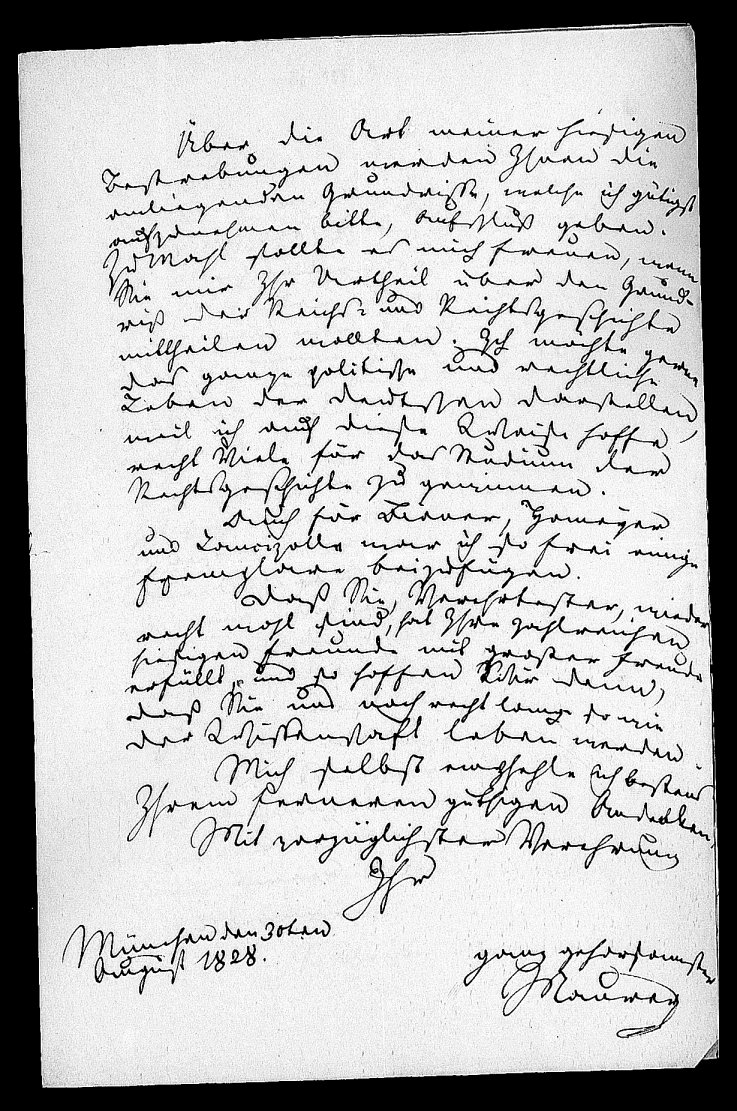 Über die Art meiner hiesigen
Bestrebungen werden Ihnen die
anliegenden Grundrisse, welche ich gütigst
aufzunehmen bitte, Aufschluß geben.
Zumahl sollte es mich freuen, wenn
Sie mir Ihr Urtheil über den Grund-
riß der Reichs- und Rechtsgeschichte
mittheilen wollten. Ich möchte gerne
das ganze politische und rechtliche
Leben der Deutschen darstellen,
weil ich auf diese Weise hoffe
recht Viele für das Studium der
Rechtsgeschichte zu gewinnen.
Auch für Biener, Homeyer
und Lancizolle war ich so frei einige
Exemplare beizufügen.
Daß Sie, Verehrtester, wieder
recht wohl sind, hat Ihre zahlreichen
hiesigen Freunde mit großer Freude
erfüllt, und so hoffen Wir denn,
daß Sie uns noch recht lange so wie
der Wissenschaft leben werden.
Mich selbst empfehle ich bestens
Ihrem ferneren gütigen Andenken.
Mit vorzüglichster Verehrung
Ihr
München den 30ten
August 1828.
ganz gehorsamster
Maurer